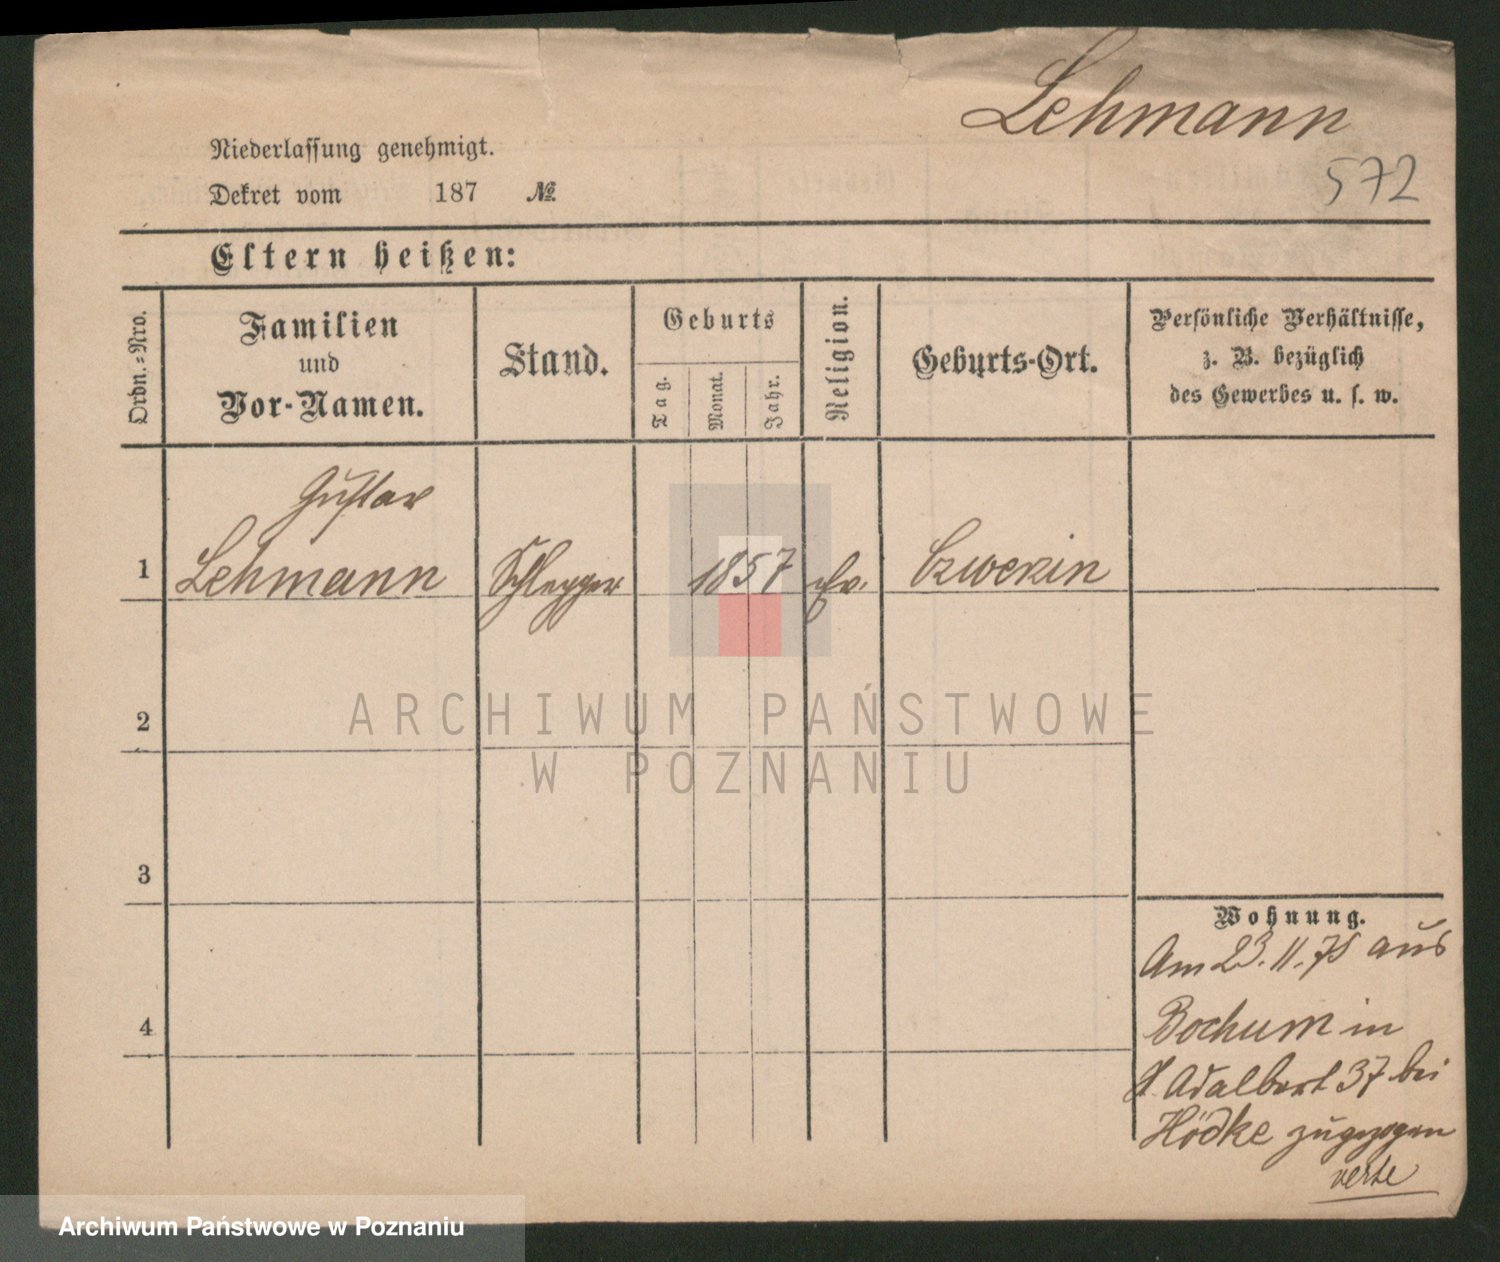 Lehmann
572
Niederlassung genehmigt.
Dekret vom 187 №
Eltern heißen:
Ordn.-Nro.
Familien
und
Vor-Namen.
Stand.
Geburts
Tag.
Monat.
Jahr.
Religion.
Geburts-Ort.
Persönliche Verhältnisse,
z. B. bezüglich
des Gewerbes u. s. w.
Gustav
1 Lehmann Schlepper 1857 Ev. Czwerzin
2
3
4
Wohnung.
Am 23.11.75 aus
Bochum in
St. Adalbert 37 bei
Hödke zugezogen
verte
ARCHIWUM PAŃSTWOWE
W POZNANIU
Archiwum Państwowe w Poznaniu